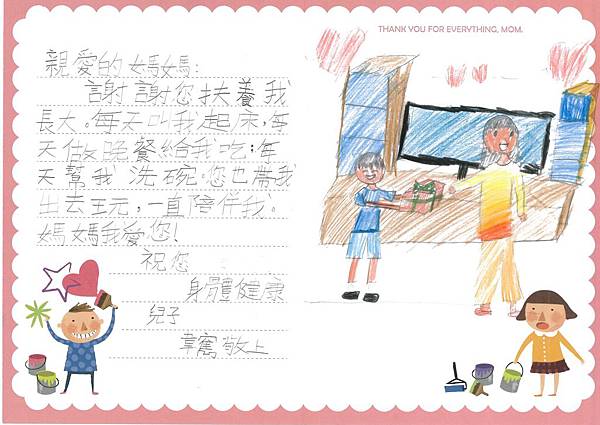 THANK YOU FOR EVERYTHING, MOM.
親愛的媽媽:
謝謝您扶養我
長大。每天叫我起床,每
天做晚餐給我吃;每
天幫我洗碗。您也帶我
出去玩,一直陪伴我。
媽媽我愛您!
祝您
身體健康
兒子
敬上